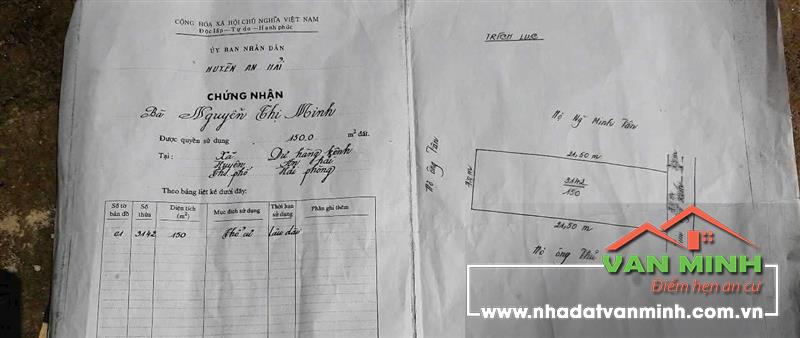 CỘNG HÒA XÃ HỘI CHỦ NGHĨA VIỆT NAM
Độc lập - Tự do - Hạnh phúc
ỦY BAN NHÂN DÂN
HUYỆN AN HẢI
CHỨNG NHẬN
Bà Nguyễn Thị Minh
Được quyền sử dụng 150.0 m² đất.
Tại: Xã Dư hàng kênh
Huyện An Hải
Thành phố Hải phòng
Theo bảng liệt kê dưới đây:
Số tờ bản đồ
Số thửa
Diện tích (m²)
Mục đích sử dụng
Thời hạn sử dụng
Phần ghi thêm
01 3142 150 Thổ cư Lâu dài
TRÍCH LỤC
Hộ Mỹ Minh Vân
Hộ ông Tân
21,50 m
7,0 m
3142
150
21,50 m
Hộ ông Thú
VAN MINH
Điểm hẹn an cư
www.nhadatvanminh.com.vn